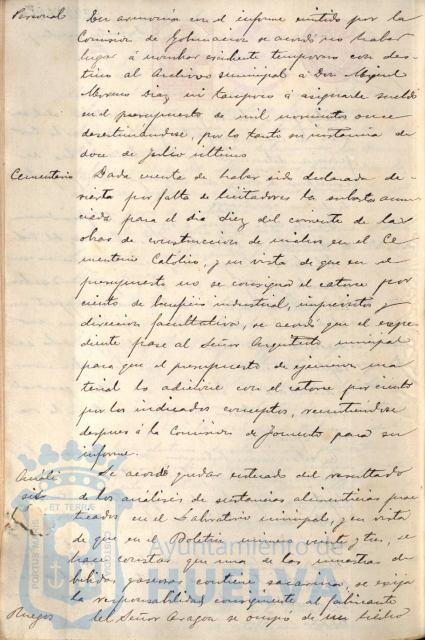 Personal En armonía con el informe emitido por la
Comisión de Gobernación se acordó no haber
lugar á nombrar escribiente temporero con des-
tino al Archivo municipal á Don Miguel
Moreno Diaz ni tampoco á asignarle sueldo
en el presupuesto de mil novecientos once
desestimándose, por lo tanto su instancia de
doce de Julio último
Cementerio Dada cuenta de haber sido declarada de-
sierta por falta de licitadores la subasta anun-
ciada para el dia diez del corriente de las
obras de construccion de nichos en el Ce-
menterio Católico, y en vista de que en el
presupuesto no se consignó el catorce por
ciento de beneficio industrial, imprevistos y
direccion facultativa, se acordó que el expe-
diente pase al Señor Arquitecto municipal
para que el presupuesto de ejecucion ma-
terial lo adicione con el catorce por ciento
por los indicados conceptos, remitiendose
despues á la Comisión de Fomento para su
informe.
Análi- Se acordó quedar enterado del resultado
sis de los análisis de sustancias alimenticias prac-
ticados en el Laboratorio municipal, y en vista
de que en el Boletin número veinte y tres, se
hace constar que una de las muestras de
bebidas gaseosas contiene sacarina, se exija
la responsabilidad consiguiente al fabricante
Ruegos El Señor Aragon se ocupó de un
PORTUS MARIS ET TERRÆ CUSTODIA
Ayuntamiento de
HUELVA